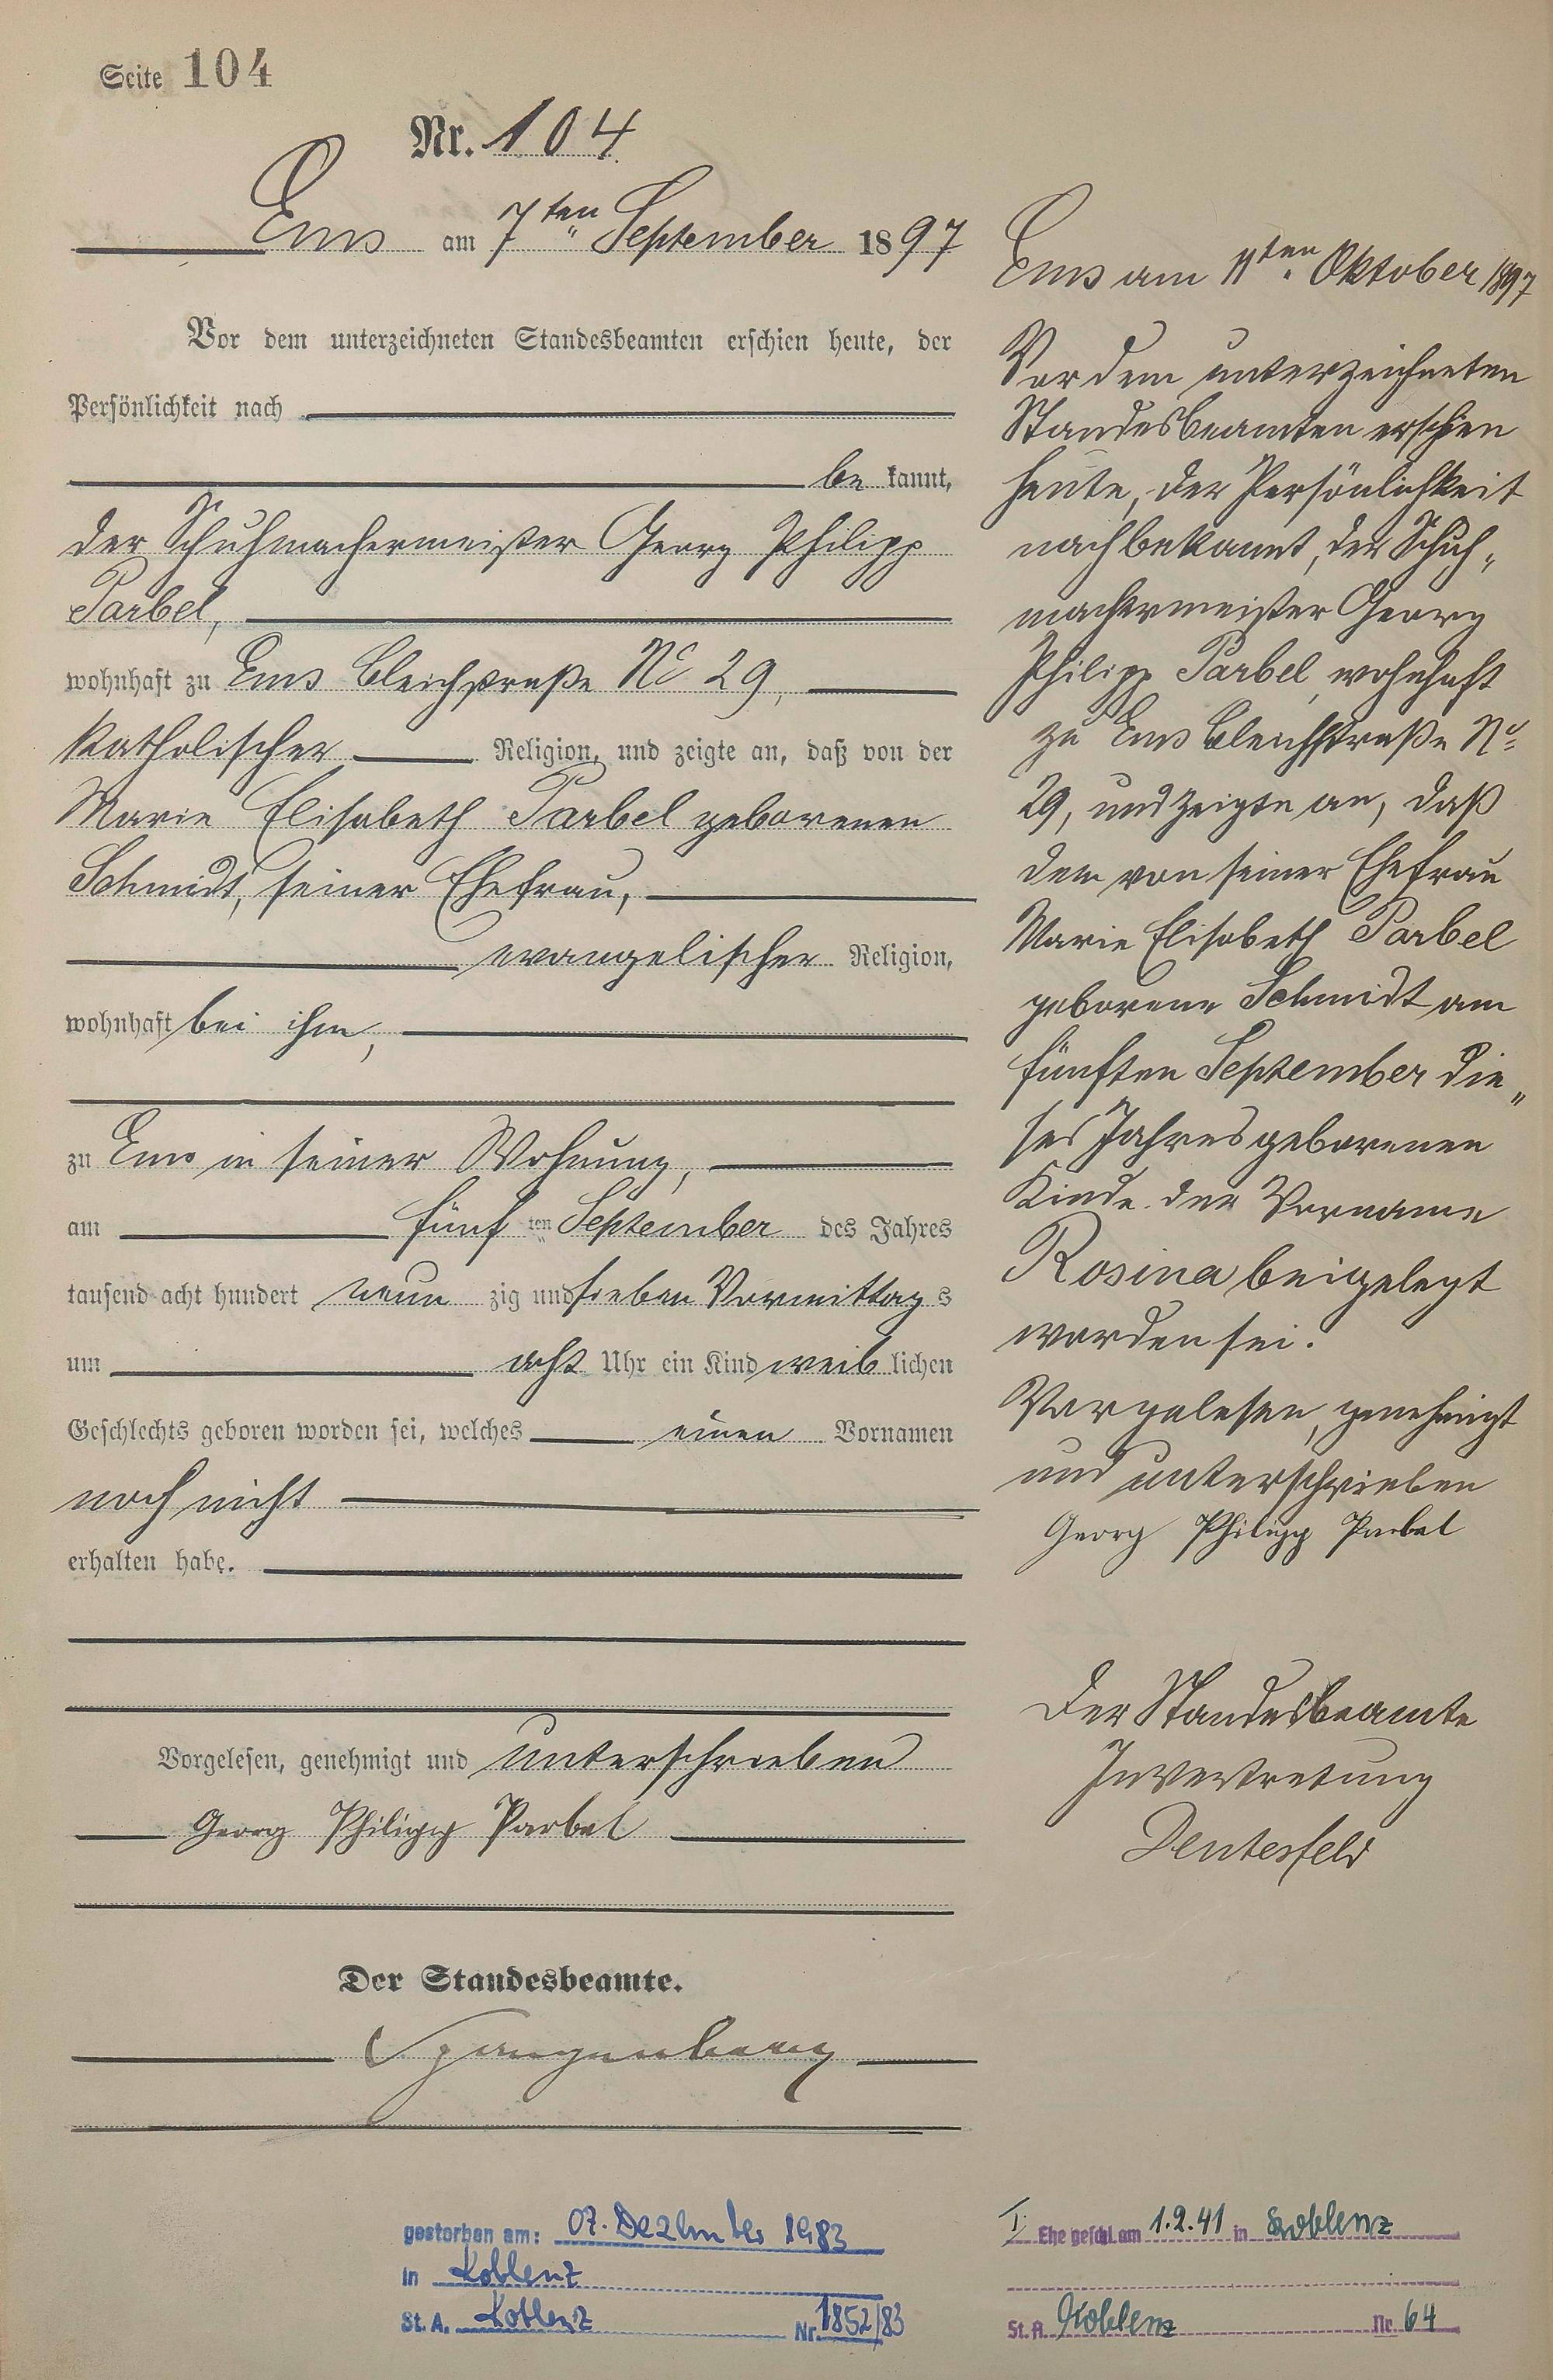 Seite 104
Nr. 104
Ems am 7ten September 1897
Vor dem unterzeichneten Standesbeamten erschien heute, der
Persönlichkeit nach
be kannt,
der Schuhmachermeister Georg Philipp
Parbel,
wohnhaft zu Ems Bleichstraße No 29,
katholischer Religion, und zeigte an, daß von der
Marie Elisabeth Parbel geborenen
Schmidt, seiner Ehefrau,
evangelischer Religion,
wohnhaft bei ihm,
zu Ems in seiner Wohnung,
am fünf ten September des Jahres
tausend acht hundert neun zig und sieben Vormittag s
um acht Uhr ein Kind weib lichen
Geschlechts geboren worden sei, welches einen Vornamen
noch nicht
erhalten habe.
Vorgelesen, genehmigt und unterschrieben
Georg Philipp Parbel
Der Standesbeamte.
Spangenberg
Ems am 11ten Oktober 1897
Vor dem unterzeichneten
Standesbeamten erschien
heute, der Persönlichkeit
nach bekannt, der Schuh-
machermeister Georg
Philipp Parbel, wohnhaft
zu Ems Bleichstraße No
29, und zeigte an, daß
dem von seiner Ehefrau
Marie Elisabeth Parbel
geborene Schmidt am
fünften September die-
ses Jahres geborenen
Kinde der Vorname
Rosina beigelegt
worden sei.
Vorgelesen, genehmigt
und unterschrieben
Georg Philipp Parbel
Der Standesbeamte
In Vertretung
gestorben am: 07. Dezember 1983
in Koblenz
St. A. Koblenz Nr. 1852/83
I. Ehe geschl. am 1.2.41 in Koblenz
St. A. Koblenz Nr. 64